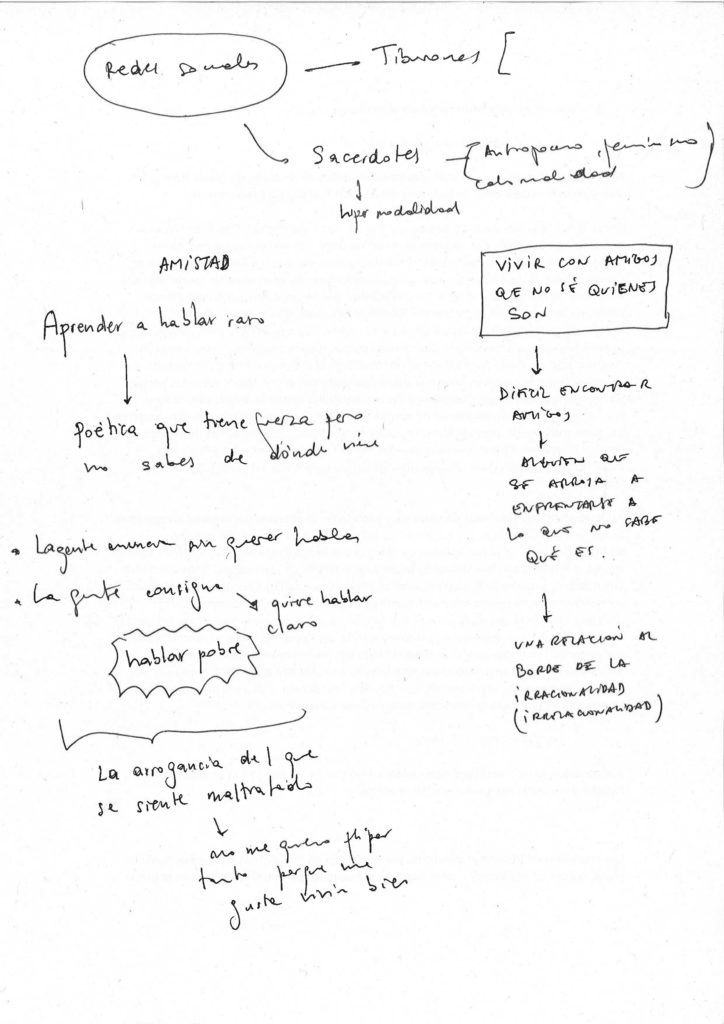 Redes sociales
Tiburones [
Sacerdotes
Antropoceno, feminismo
colonialidad
hipermodalidad
AMISTAD
Aprender a hablar raro
poética que tiene fuerza pero
no sabes de dónde viene
VIVIR CON AMIGOS
QUE NO SÉ QUIENES
SON
DIFICIL ENCONTRAR
AMIGOS
ALGUIEN QUE
SE ARROJA A
ENFRENTARSE A
LO QUE NO SABE
QUÉ ES.
UNA RELACIÓN AL
BORDE DE LA
IRRACIONALIDAD
(IRRELACIONALIDAD)
• La gente sin querer hablar
• La gente consigna
quiere hablar
claro
hablar pobre
La arrogancia del que
se siente maltratado
no me quiero flipar
tanto porque me
gusta vivir bien